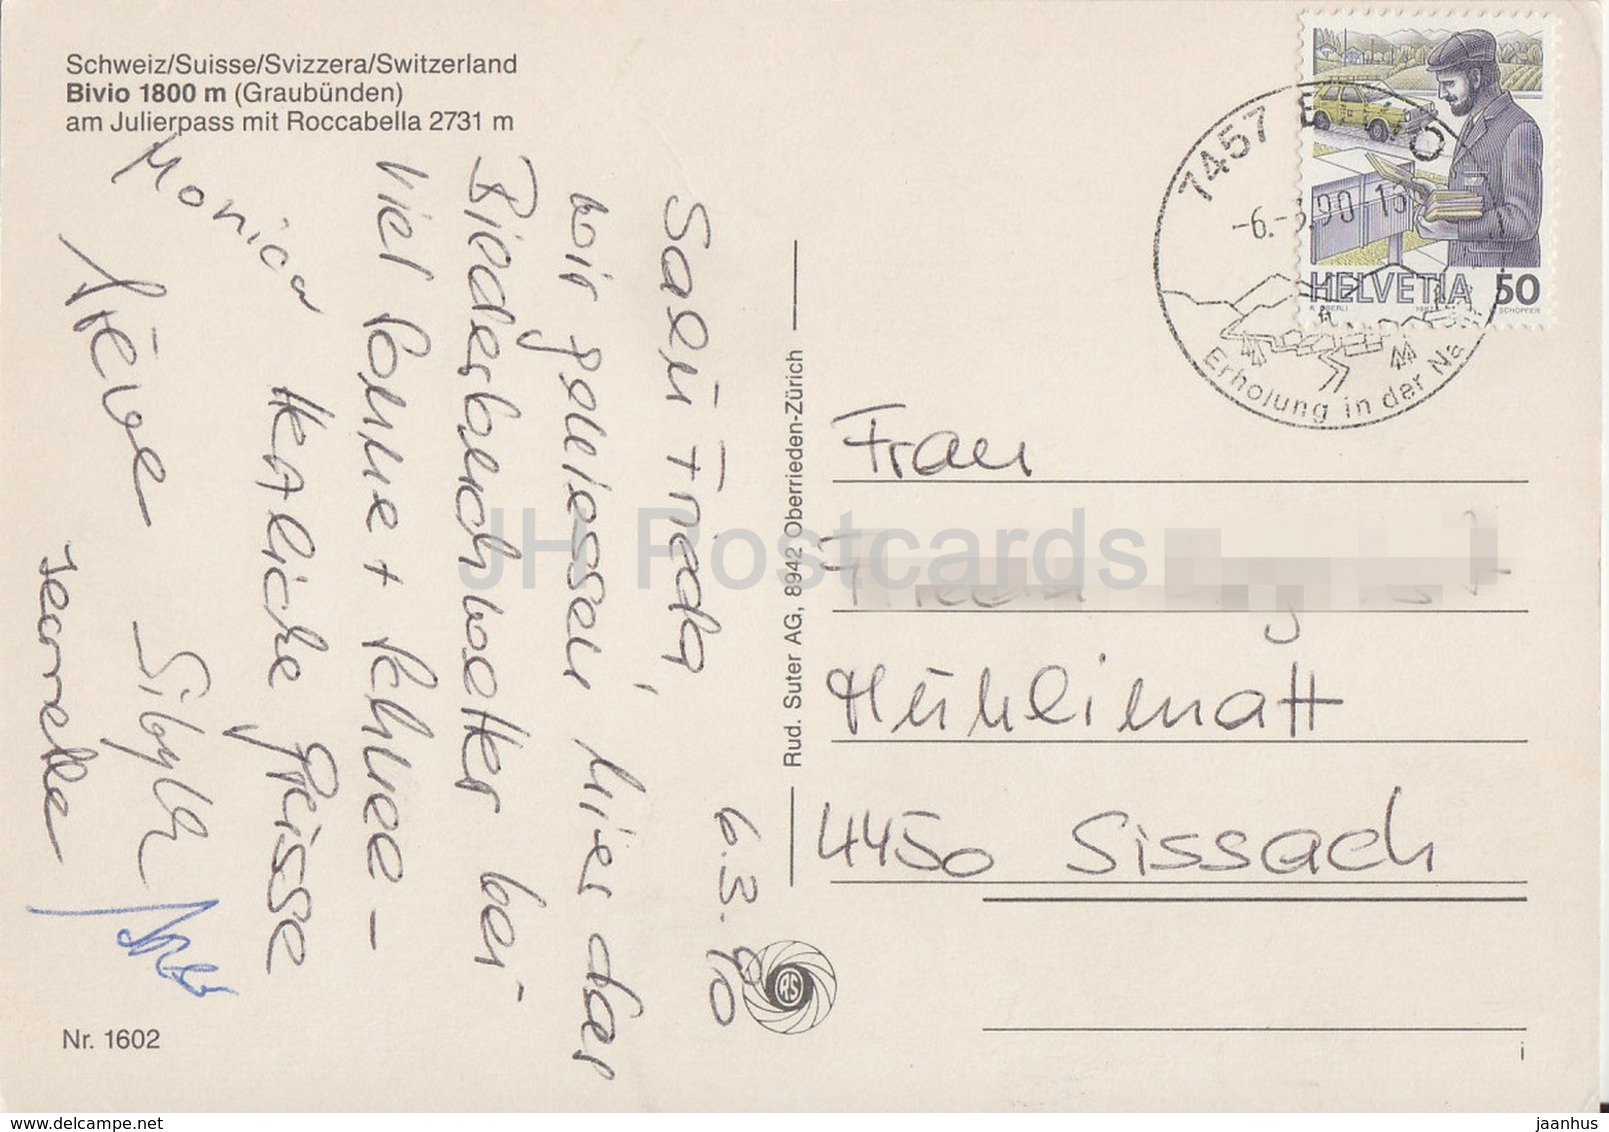 Schweiz/Suisse/Svizzera/Switzerland
Bivio 1800 m (Graubünden)
am Julierpass mit Roccabella 2731 m
6.3.90
Salü Frieda,
wir geniessen hier das
Bilderbuchwetter bei
viel Sonne + Schnee –
Herzliche Grüsse
Monica
Sibylle
Jeannette
Rud. Suter AG, 8942 Oberrieden-Zürich
RS
Nr. 1602
7457
-6.-3.90
Erholung in der Na
HELVETIA 50
K. OBERLI 1987 SCHOPFER
Frau
Mühlimatt
4450 Sissach
i
JH Postcards
delcampe.net
jaanhus